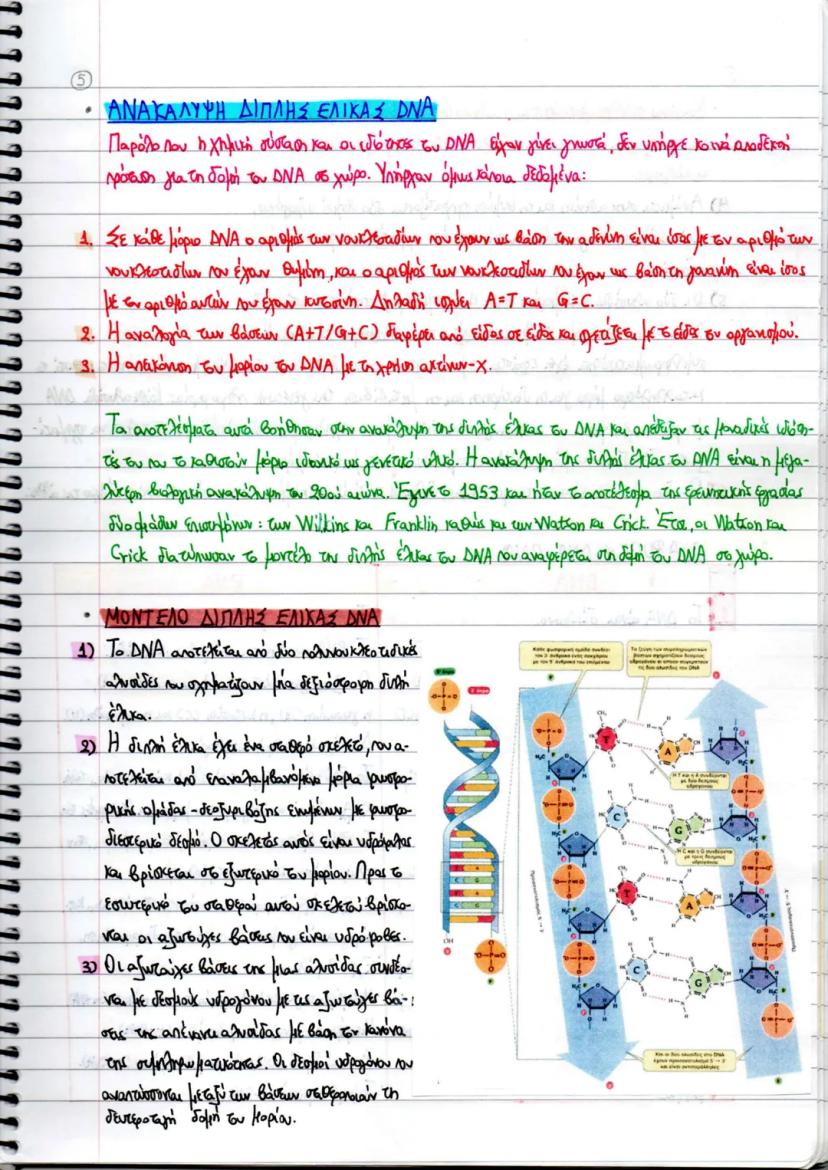 5
• ΑΝΑΚΑΛΥΨΗ ΔΙΠΛΗΣ ΕΛΙΚΑΣ DNA
Παρόλο που η χημική σύσταση και οι ιδιότητες του DNA είχαν γίνει γνωστά, δεν υπήρχε κοινά αποδεκτή
πρόταση για τη δομή του DNA στο χώρο. Υπήρχαν όμως κάποια δεδομένα:
1. Σε κάθε μόριο DNA ο αριθμός των νουκλεοτιδίων που έχουν ως βάση την αδενίνη είναι ίσος με τον αριθμό των
νουκλεοτιδίων που έχουν θυμίνη, και ο αριθμός των νουκλεοτιδίων που έχουν ως βάση τη γουανίνη είναι ίσος
με τον αριθμό αυτών που έχουν κυτοσίνη. Δηλαδή ισχύει A=T και G=C.
2. Η αναλογία των βάσεων (A+T/G+C) διαφέρει από είδος σε είδος και σχετίζεται με το είδος του οργανισμού.
3. Η απεικόνιση του μορίου του DNA με τη χρήση ακτίνων-χ.
Τα αποτελέσματα αυτά βοήθησαν στην ανακάλυψη της διπλής έλικας του DNA και απέδειξαν τις μοναδικές ιδιότη-
τές του που το καθιστούν μόριο ιδανικό ως γενετικό υλικό. Η ανακάλυψη της διπλής έλικας του DNA είναι η μεγα-
λύτερη βιολογική ανακάλυψη του 20ού αιώνα. Έγινε το 1953 και ήταν το αποτέλεσμα της ερευνητικής εργασίας
δύο ομάδων επιστημόνων: των Wilkins και Franklin καθώς και των Watson και Crick. Έτσι, οι Watson και
Crick διατύπωσαν το μοντέλο της διπλής έλικας του DNA που αναφέρεται στη δομή του DNA στο χώρο.
• ΜΟΝΤΕΛΟ ΔΙΠΛΗΣ ΕΛΙΚΑΣ DNA
1) Το DNA αποτελείται από δύο πολυνουκλεοτιδικές
αλυσίδες που σχηματίζουν μία δεξιόστροφη διπλή
έλικα.
2) Η διπλή έλικα έχει ένα σταθερό σκελετό, που α-
ποτελείται από επαναλαμβανόμενα μόρια φωσφο-
ρικής ομάδας - δεοξυριβόζης ενωμένων με φωσφο-
διεστερικό δεσμό. Ο σκελετός αυτός είναι υδρόφιλος
και βρίσκεται στο εξωτερικό του μορίου. Προς το
εσωτερικό του σταθερού αυτού σκελετού βρίσκο-
νται οι αζωτούχες βάσεις που είναι υδρόφοβες.
3) Οι αζωτούχες βάσεις της μιας αλυσίδας συνδέο-
νται με δεσμούς υδρογόνου με τις αζωτούχες βά-
σεις της απέναντι αλυσίδας με βάση τον κανόνα
της συμπληρωματικότητας. Οι δεσμοί υδρογόνου που
αναπτύσσονται μεταξύ των βάσεων σταθεροποιούν τη
δευτεροταγή δομή του μορίου.
Κάθε φωσφορική ομάδα συνδέει
τον 3' άνθρακα ενός σακχάρου
με τον 5' άνθρακα του επόμενου
Τα ζεύγη των συμπληρωματικών
βάσεων σχηματίζουν δεσμούς
υδρογόνου οι οποίοι συγκρατούν
τις δύο αλυσίδες του DNA
T
A
Η T και η A συνδέονται
με δύο δεσμούς
υδρογόνου
C
G
Η C και η G συνδέονται
με τρεις δεσμούς
υδρογόνου
T
A
C
G
OH
Και οι δύο αλυσίδες στο DNA
έχουν προσανατολισμό 5' → 3'
και είναι αντιπαράλληλες